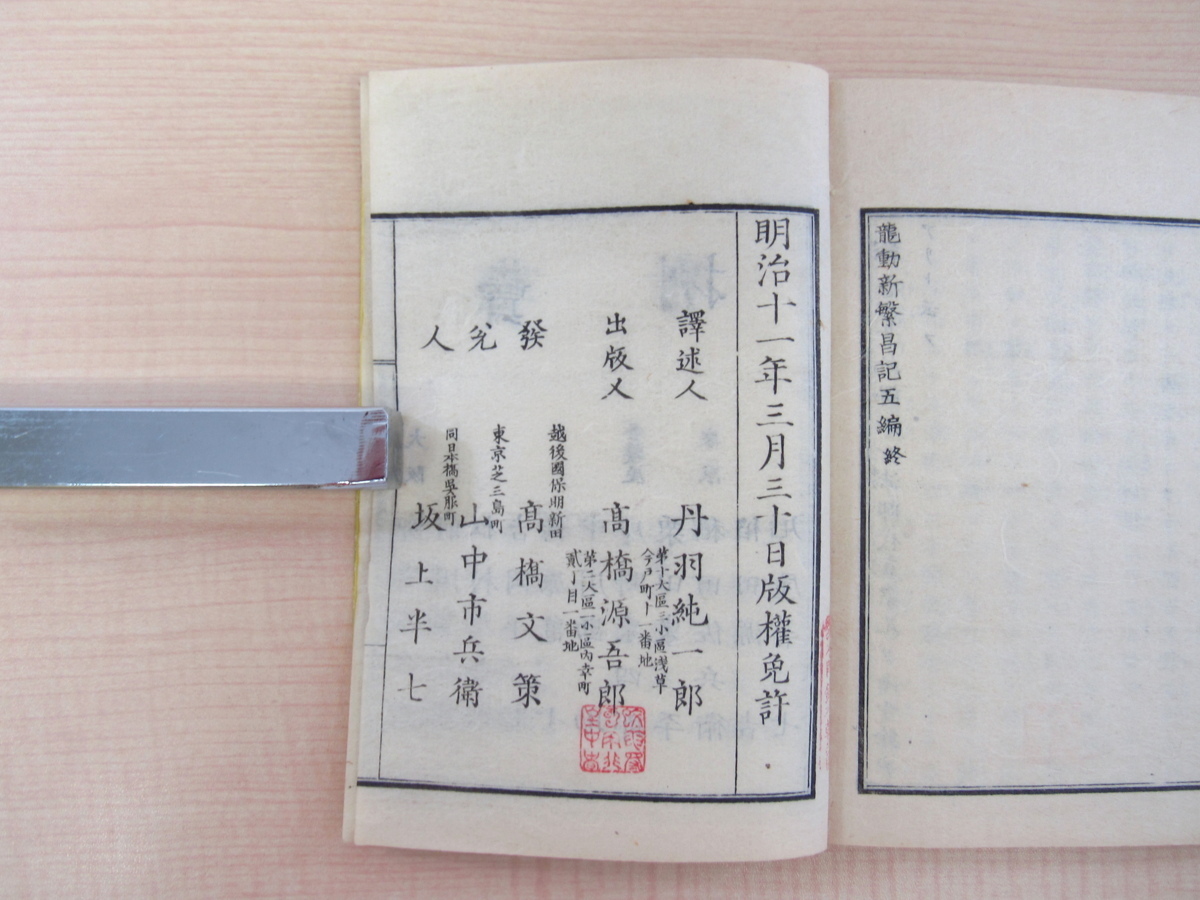 龍動新繁昌記五編終
明治十一年三月三十日版權免許
譯述人 丹羽純一郎
第十大區三小區浅草
今戸町十一番地
出版人 髙橋源吾郎
第二大區一小區内幸町
貳丁目一番地
發兌人
越後國保明新田
髙橋文策
東京芝三島町
山中市兵衛
同日本橋呉服町
坂上半七